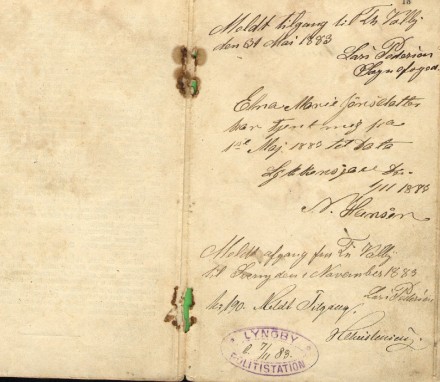 18
Meldt tilgang til Tr. Valby
den 31 Mai 1883
Lars Pedersen
Sognefoged
Elna Marie Jörisdatter
har tjent mig fra
1ste Maj 1883 til dato
Lykkensjæl
1/11 1883
N. Hansen
Meldt afgang fra Tr. Valby
til Lyngby den 1 November 1883
Lars Pedersen
Meldt Tilgang.
HChristensen
LYNGBY
d. 7/11 83.
POLITISTATION